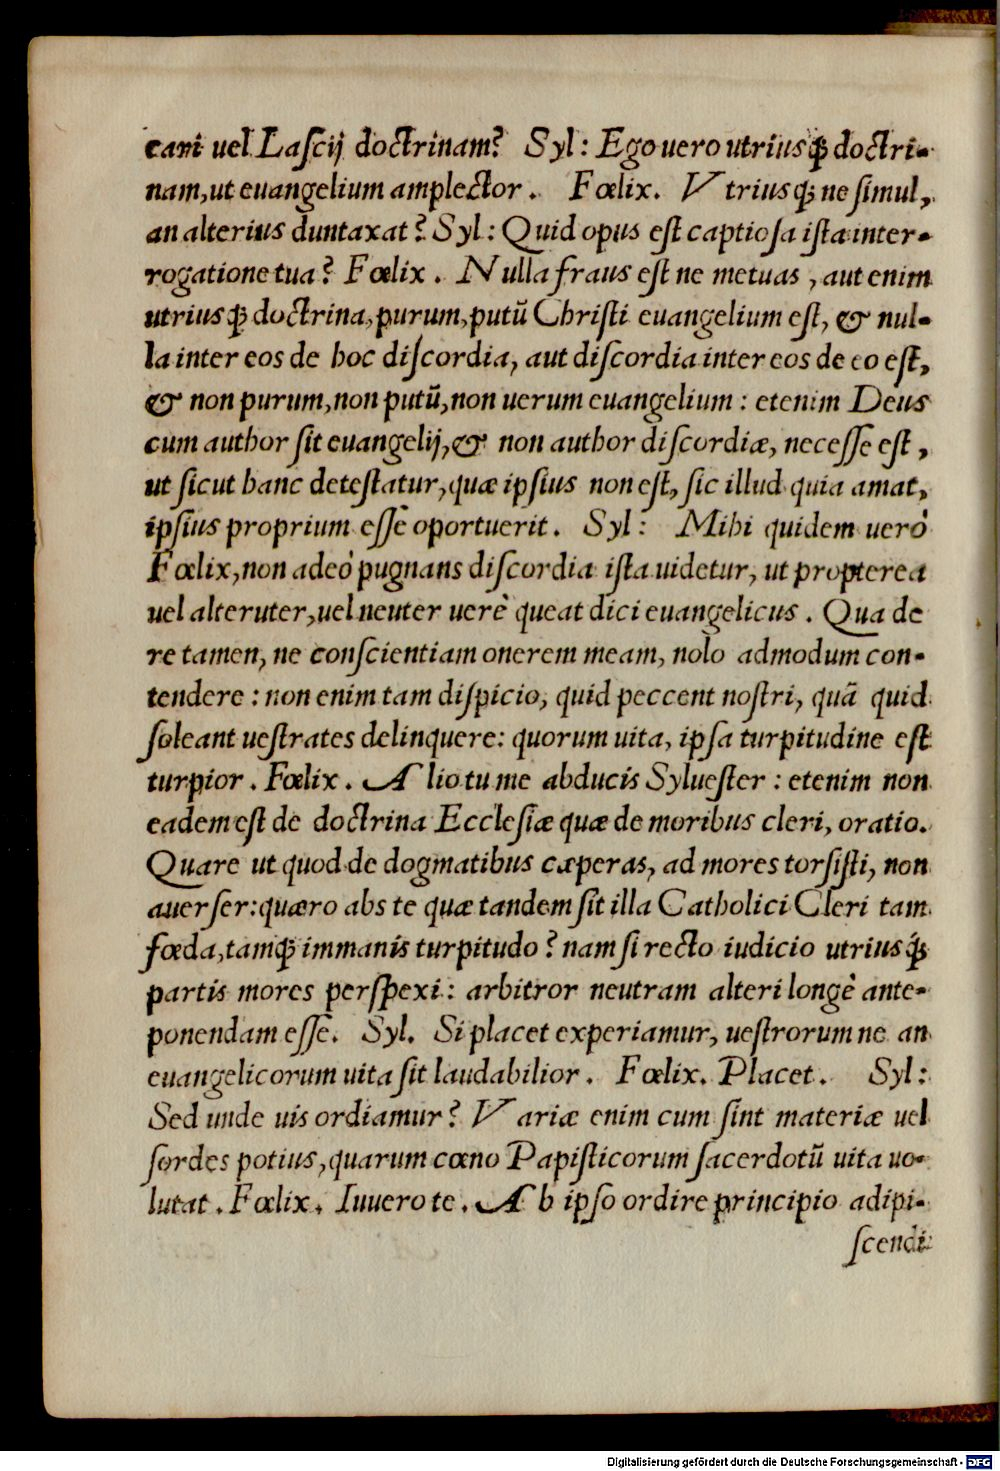 cani uel Laſcij doctrinam? Syl: Ego uero utriusq́ꝫ doctri-
nam, ut euangelium amplector. Fœlix. Vtriusqꝫ ne ſimul,
an alterius duntaxat? Syl: Quid opus eſt captioſa iſta inter-
rogatione tua? Fœlix. Nulla fraus eſt ne metuas, aut enim
utriusqꝫ doctrina, purum, putũ Chriſti euangelium eſt, & nul-
la inter eos de hoc diſcordia, aut diſcordia inter eos de eo eſt,
& non purum, non putũ, non uerum euangelium: etenim Deus
cum author ſit euangelij, & non author diſcordiæ, neceſſe eſt,
ut ſicut hanc deteſtatur, quæ ipſius non eſt, ſic illud quia amat,
ipſius proprium eſſe oportuerit. Syl: Mihi quidem uerò
Fœlix, non adeò pugnans diſcordia iſta uidetur, ut propterea
uel alteruter, uel neuter uerè queat dici euangelicus. Qua de
re tamen, ne conſcientiam onerem meam, nolo admodum con-
tendere: non enim tam diſpicio, quid peccent noſtri, quã quid
ſoleant ueſtrates delinquere: quorum uita, ipſa turpitudine eſt
turpior. Fœlix. Alio tu me abducis Sylueſter: etenim non
eadem eſt de doctrina Eccleſiæ quæ de moribus cleri, oratio.
Quare ut quod de dogmatibus cœperas, ad mores torſiſti, non
auerſer: quæro abs te quæ tandem ſit illa Catholici Cleri tam
fœda, tamqꝫ immanis turpitudo? nam ſi recto iudicio utriusq́ꝫ
partis mores perſpexi: arbitror neutram alteri longè ante-
ponendam eſſe. Syl. Si placet experiamur, ueſtrorum ne an
euangelicorum uita ſit laudabilior. Fœlix. Placet. Syl:
Sed unde uis ordiamur? Variæ enim cum ſint materiæ uel
ſordes potius, quarum cœno Papiſticorum ſacerdotũ uita uo-
lutat. Fœlix. Iuuero te. Ab ipſo ordire principio adipi-
ſcendi
Digitalisierung gefördert durch die Deutsche Forschungsgemeinschaft - DFG